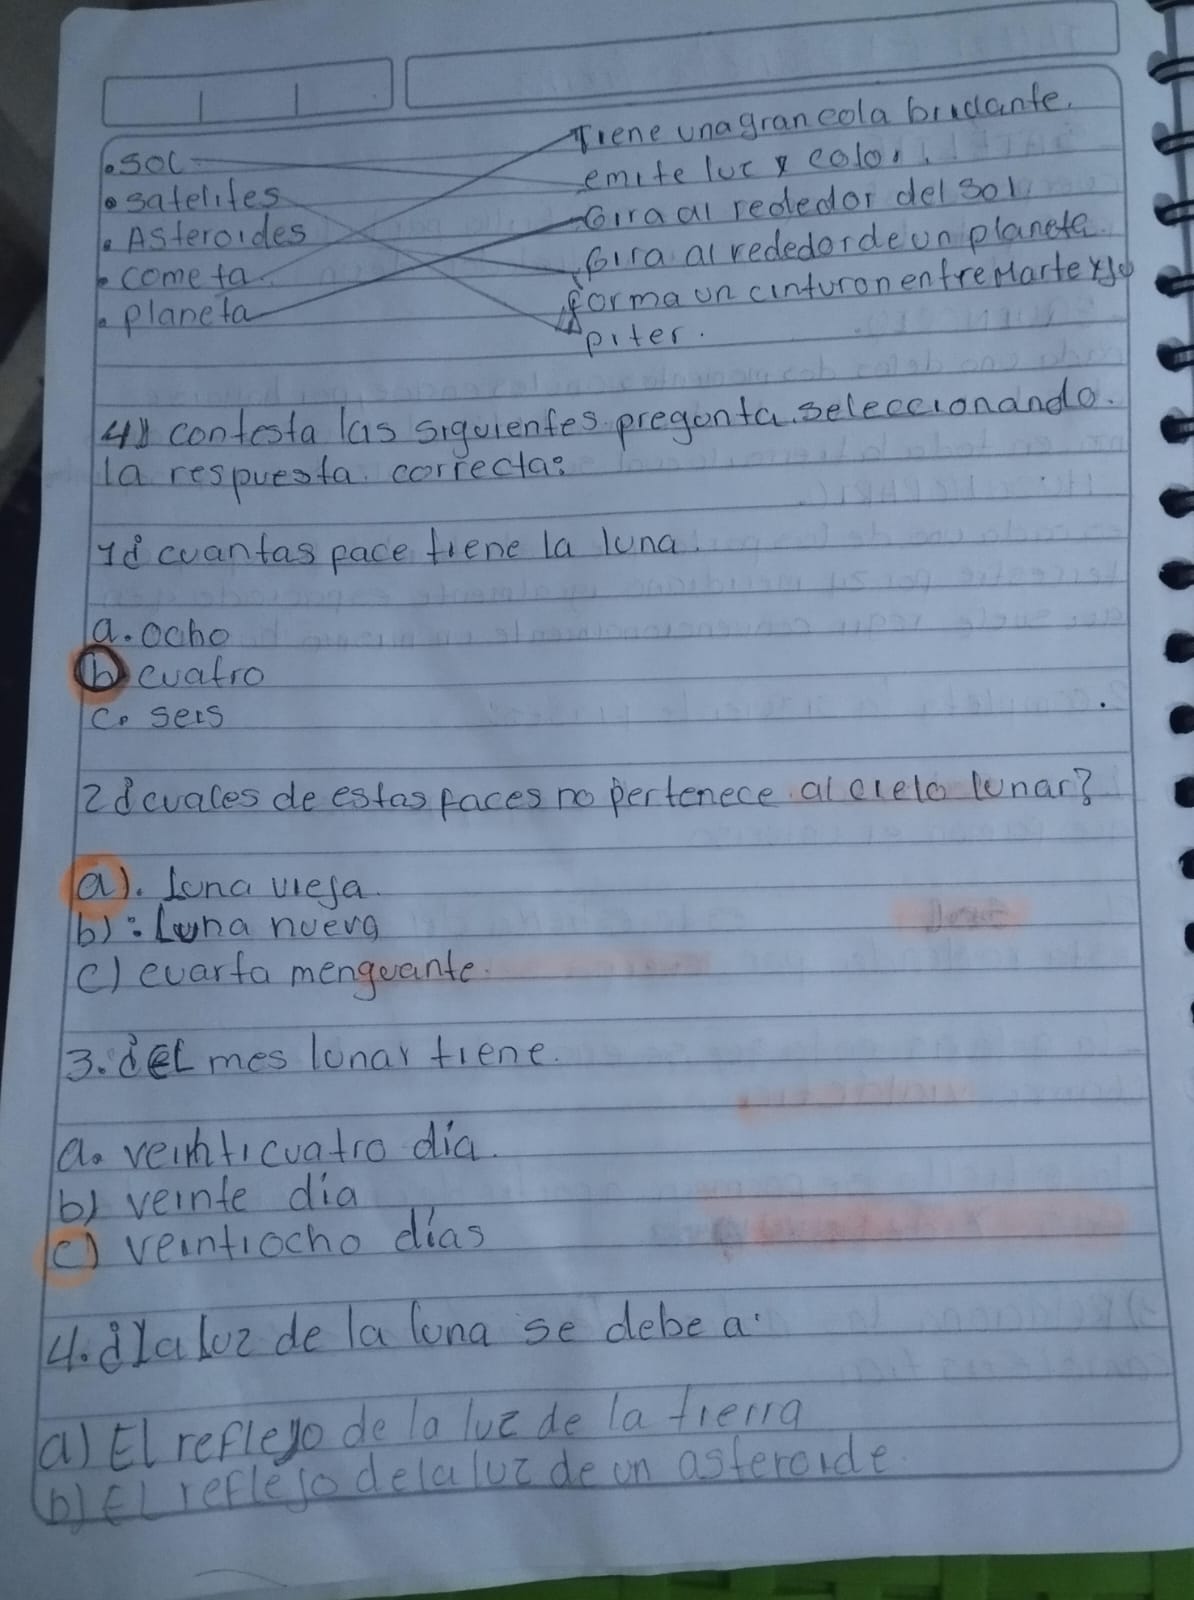 Tiene una gran cola bridante.
• SOL
emite luz y color.
• satelites
Gira al rededor del sol
• Asteroides
Gira al rededor de un planeta
• cometa
forma un cinturon entre Marte y Ju
• planeta
piter.
4) contesta las siguientes pregonta. seleccionando.
la respuesta. correcta:
1¿ cuantas pace tiene la luna.
a. ocho
b) cuatro
c. seis
2¿cuales de estas faces no pertenece al cielo lunar?
a). Luna vieja.
b): Luna nueva
c) cuarta menguante.
3. ¿EL mes lunar tiene.
a. veinticuatro día.
b) veinte día
c) veintiocho días
4. ¿La luz de la luna se debe a:
a) EL reflejo de la luz de la tierra
b) EL reflejo de la luz de un asteroide.